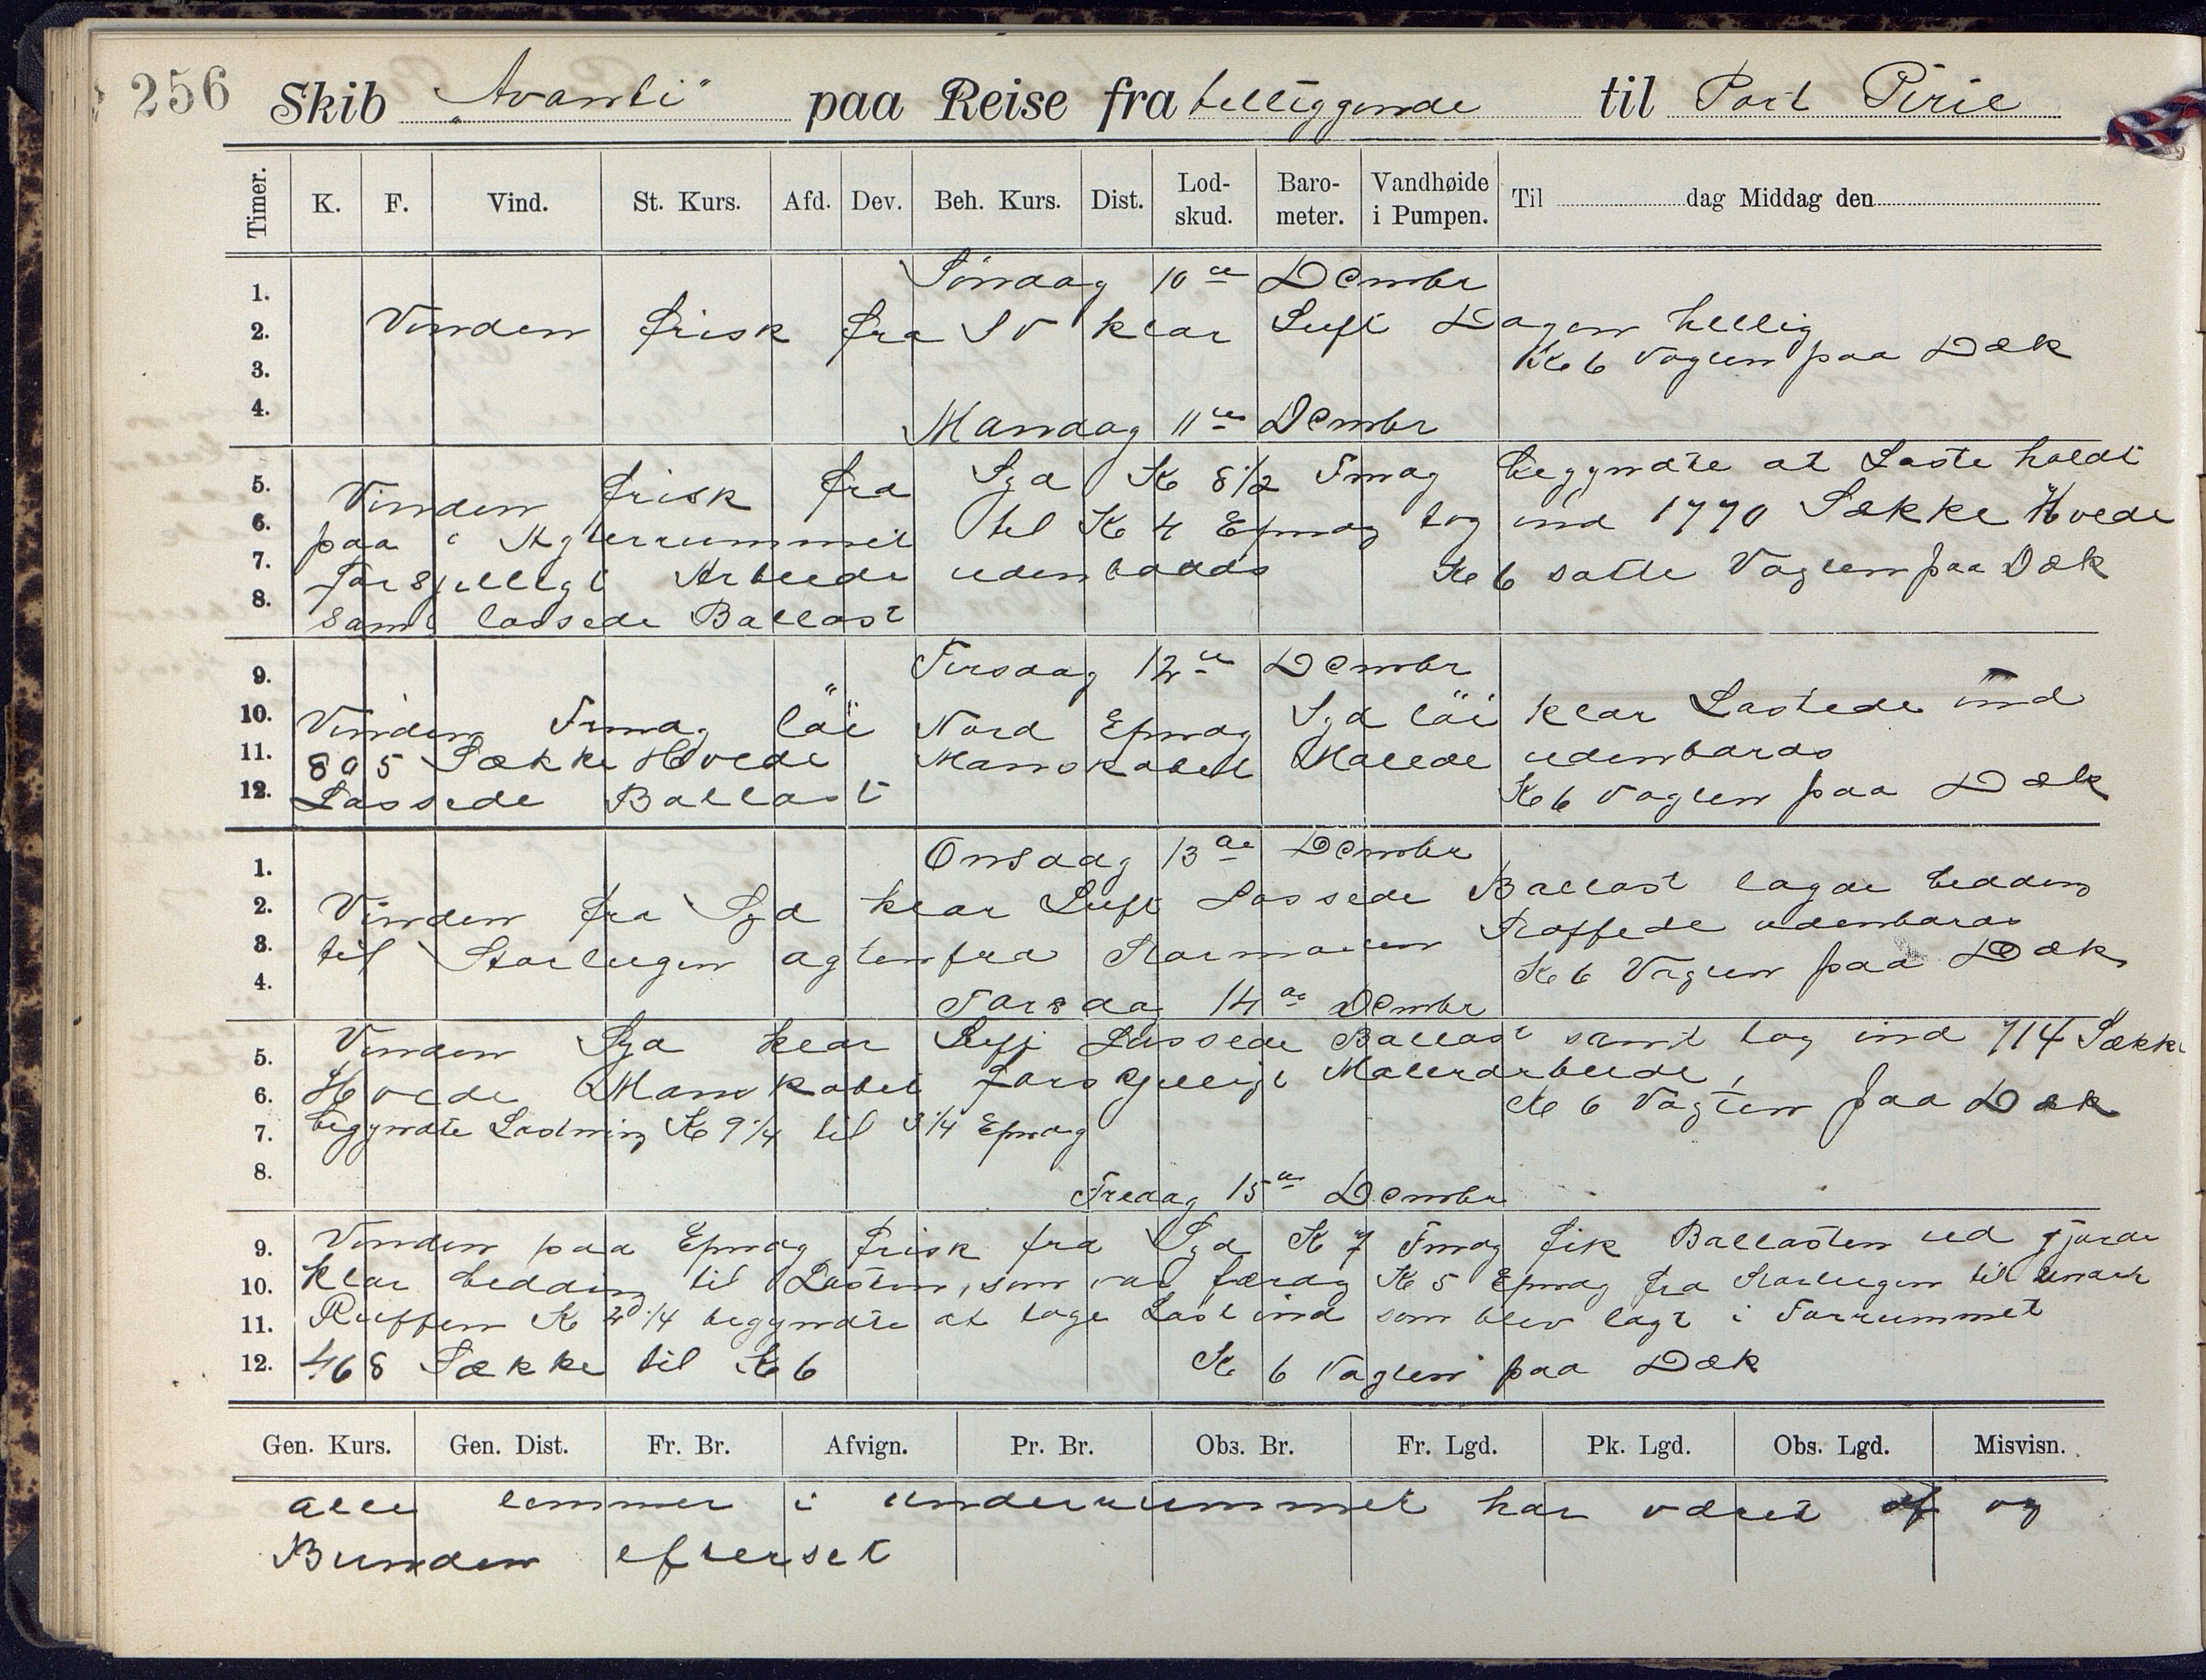 256 Skib "Avanti" paa Reise fra belliggende til Port Pirie
Timer. K. F. Vind. St. Kurs. Afd. Dev. Beh. Kurs. Dist. Lod-skud. Baro-meter. Vandhøide i Pumpen. Til dag Middag den
Søndag 10de Dembr
1.
2. Vinden frisk fra SV klar Luft Dagen hellig
3. Kl 6 Vagten paa Dæk
4. Mandag 11te Dembr
5. Vinden frisk fra Syd Kl 8 1/2 Fmag begyndte at Laste holdt
6. paa i Agterrummet til Kl 4 Epmag tog ind 1770 Sække Hvede
7. forsjelligt Arbeide udenbords Kl 6 satte Vagten paa Dæk
8. samt lossede Ballast
9. Tirsdag 12te Dembr
10. Vinden Frmag løi Nord Epmag Syd løi klar Lastede ind
11. 805 Sække Hvede Manskabet Malede udenbords
12. Lossede Ballast Kl 6 Vagten paa Dæk
1. Onsdag 13de Dembr
2. Vinden fra Syd klar Luft Lossede Ballast lagde bedding
3. til Storlugen agtenfra Stormasten udenbords
4. Kl 6 Vagten paa Dæk
Torsdag 14de Dembr
5. Vinden Syd klar Luft Lossede Ballast samt tog ind 714 Sække
6. Hvede Manskabet forsgjelligt Malerarbeide,
Kl 6 Vagten paa Dæk
7. begyndte Lastning Kl 9 1/4 til 3 1/4 Epmag
8. Fredag 15de Dembr
9. Vinden paa Epmag frisk fra Syd Kl 7 Fmag fik Ballasten ud gjorde
10. klar bedding til Lasten, som var færdig Kl 5 Epmag fra Storlugen til under
11. Ruffen Kl 1/4 begyndte at tage Last ind som blev lagt i Forrummet
12. 468 Sække til Kl 6 Kl 6 Vagten paa Dæk
Gen. Kurs. Gen. Dist. Fr. Br. Afvign. Pr. Br. Obs. Br. Fr. Lgd. Pk. Lgd. Obs. Lgd. Misvisn.
alle lemmer i underrummet har været af og
Bunden efterset